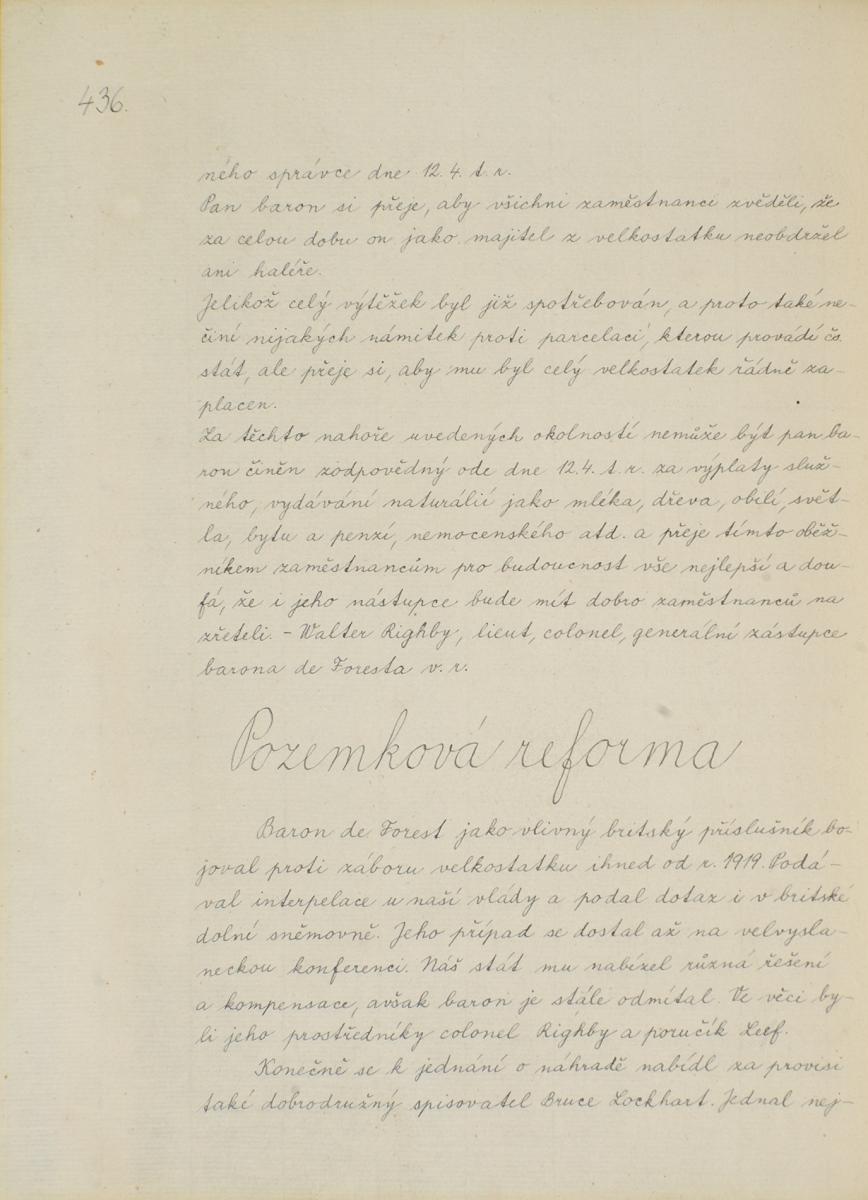 436.
ného správce dne 12.4. t. r.
Pan baron si přeje, aby všichni zaměstnanci zvěděli, že
za celou dobu on jako majitel z velkostatku neobdržel
ani haléře.
Jelikož celý výtěžek byl již spotřebován, a proto také ne-
činí nijakých námitek proti parcelaci, kterou provádí čs.
stát, ale přeje si, aby mu byl celý velkostatek řádně za-
placen.
Za těchto nahoře uvedených okolností nemůže být pan ba-
ron činěn zodpovědný ode dne 12.4. t. r. za výplaty služ-
ného, vydávání naturálií jako mléka, dřeva, obilí, svět-
la, bytu a penzí, nemocenského atd. a přeje tímto oběž-
níkem zaměstnancům pro budoucnost vše nejlepší a dou-
fá, že i jeho nástupce bude mít dobro zaměstnanců na
zřeteli. - Walter Righby, lieut, colonel, generální zástupce
barona de Foresta v. r.
Pozemková reforma
Baron de Forest jako vlivný britský příslušník bo-
joval proti záboru velkostatku ihned od r. 1919. Podá-
val interpelace u naší vlády a podal dotaz i v britské
dolní sněmovně. Jeho případ se dostal až na velvysla-
neckou konferenci. Náš stát mu nabízel různá řešení
a kompensace, avšak baron je stále odmítal. Ve věci by-
li jeho prostředníky colonel Righby a poručík Leef.
Konečně se k jednání o náhradě nabídl za provisi
také dobrodružný spisovatel Bruce Lockhart. Jednal nej-